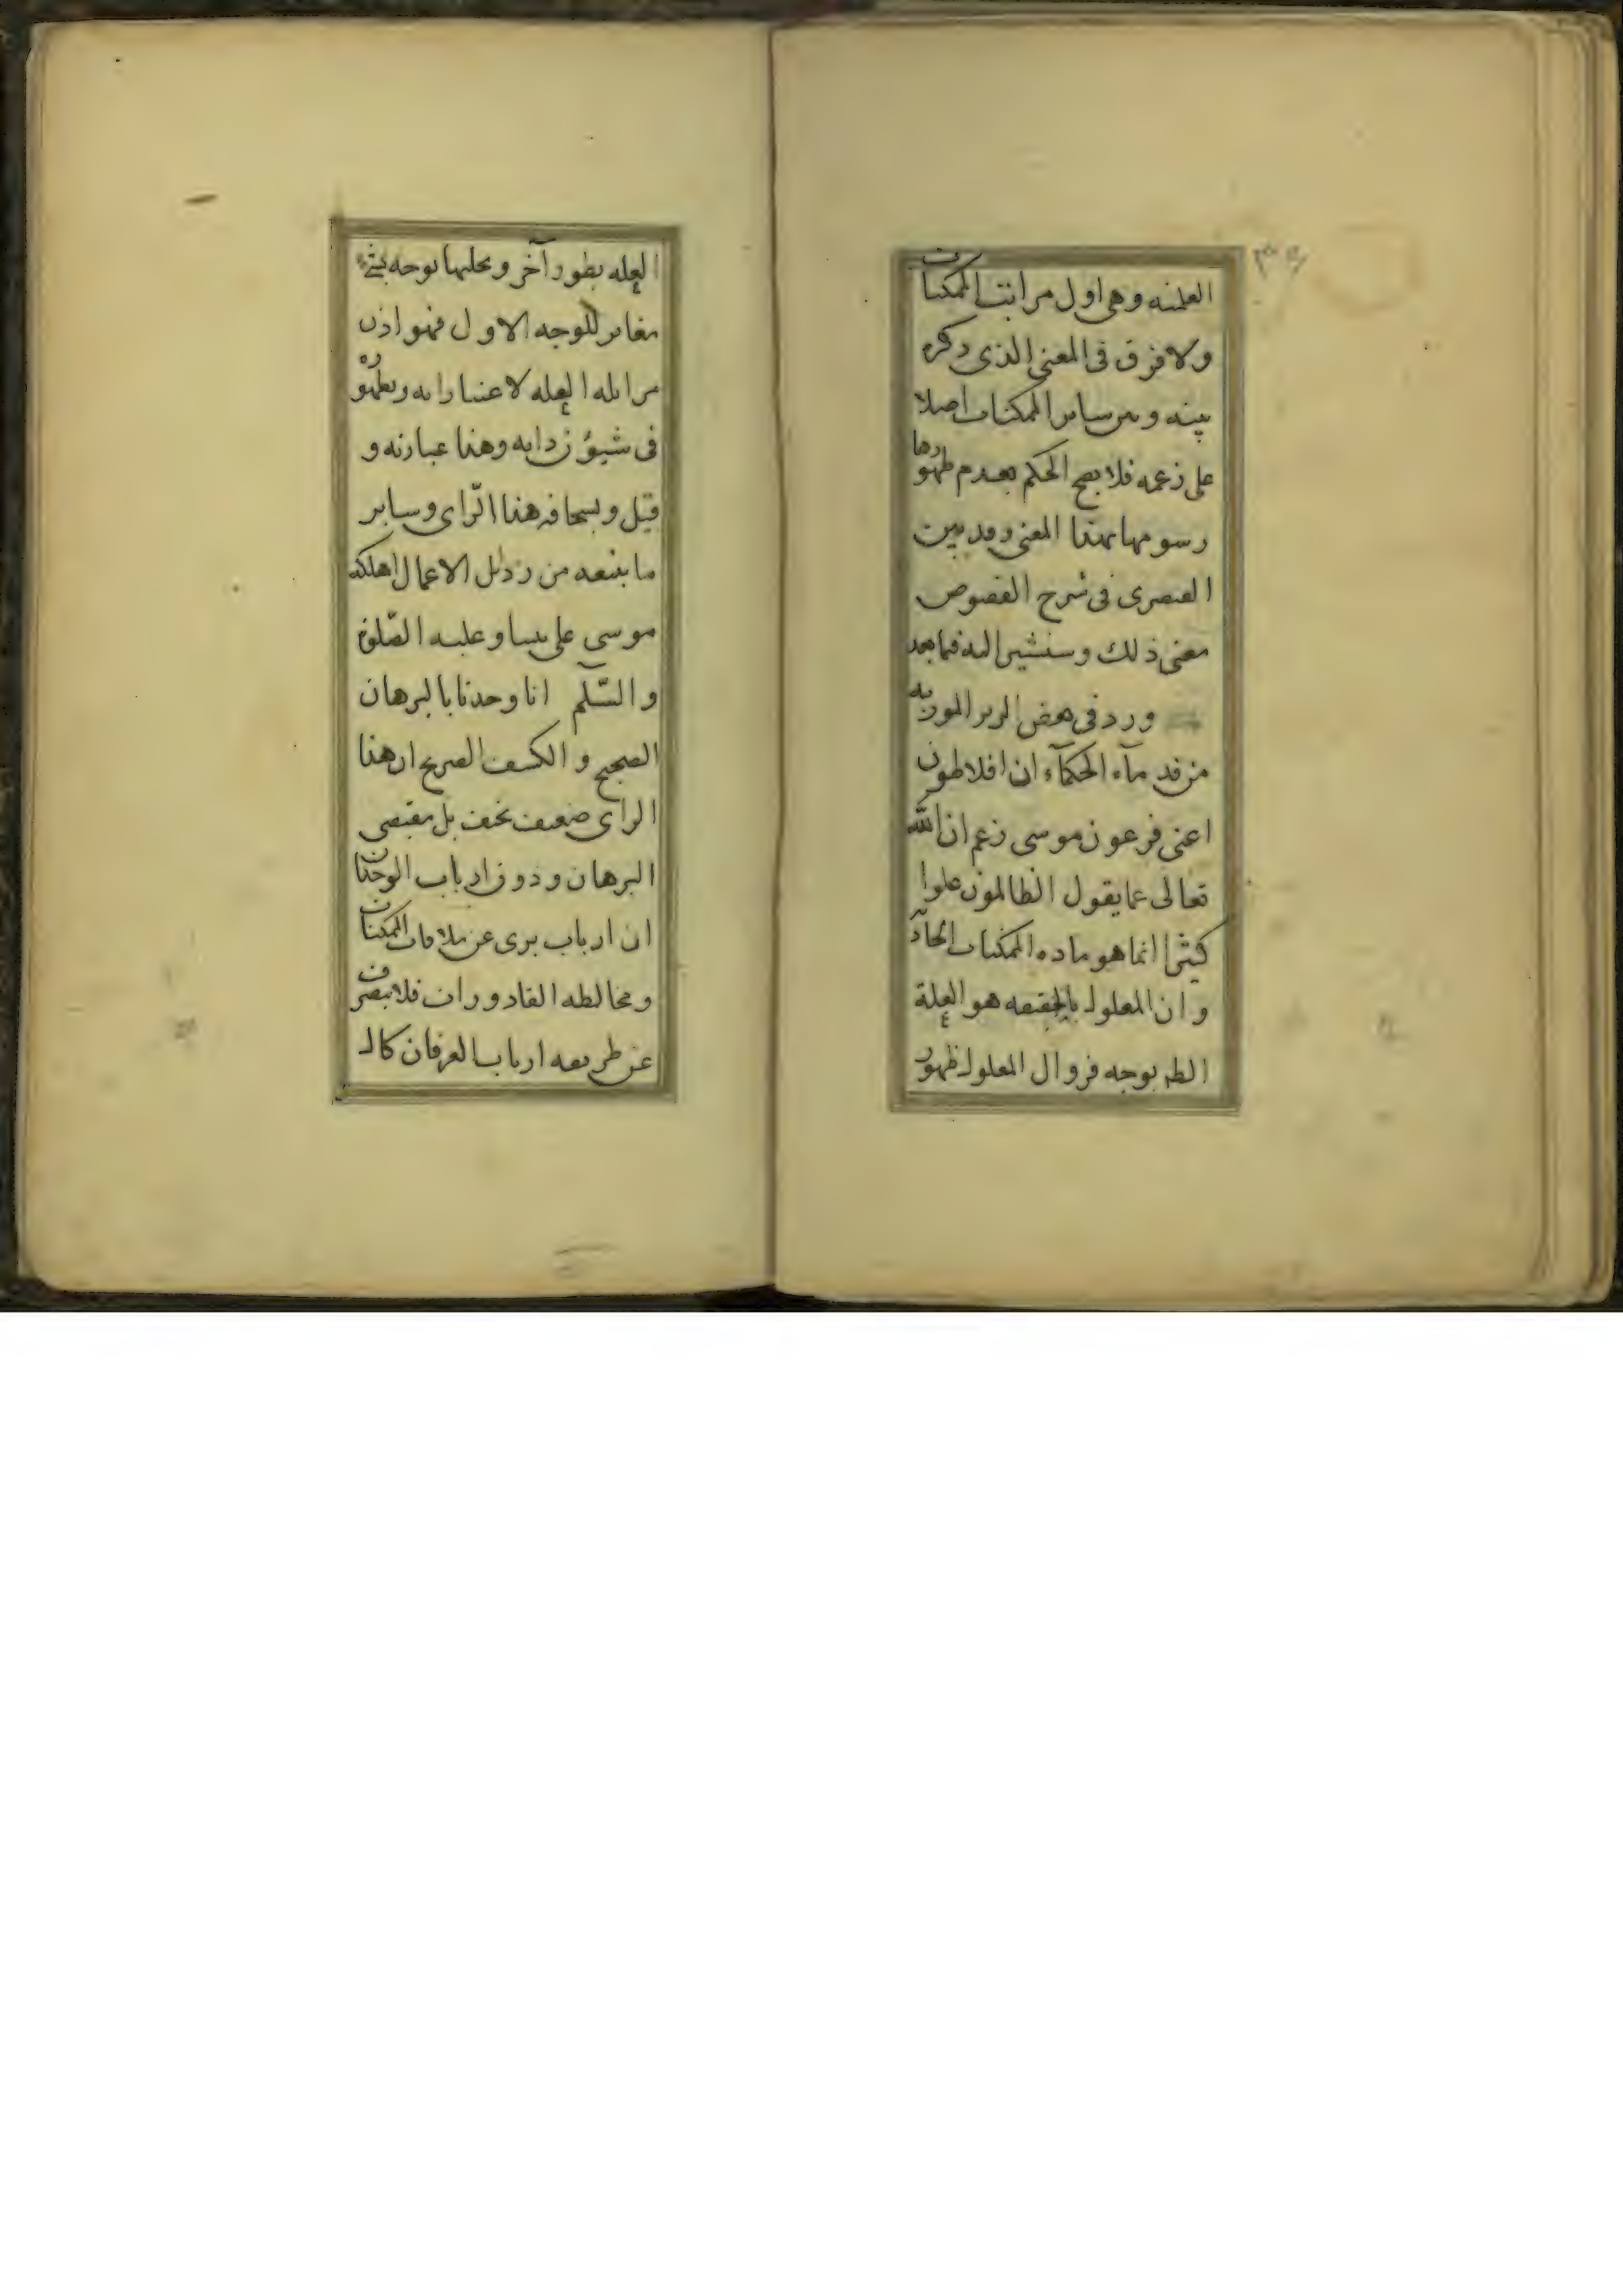 العلمیه وهی اول مراتب الممکنات
ولا فرق فی المعنی الذی ذکره
بینه وبین سایر الممکنات اصلا
علی زعمه فلا یصح الحکم بعدم ظهورها
رسومها بهذا المعنی وقد بین
القیصری فی شرح الفصوص
معنی ذلك وسنشیر الیه فیما بعد
ورد فی بعض الزبر الموروثه
من قدمآء الحکمآء ان افلاطون
اعنی فرعون موسی زعم ان الله
تعالی عما یقول الظالمون علوا
کثیرا انما هو ماده الممکنات
وان المعلول بالحقیقه هو العلة
بوجه فزوال المعلول ظهور
العله بطور آخر وتجلیها بوجه
مغایر للوجه الاول فهو اذن
مزایله العله لاعتباراته وبطهوره
فی شیؤن ذاته وهذا عبارته و
قیل وبسخافه هذا الرّای وسایر
ما یتبعه من رذئل الاعمال اهلکه
موسی علی نبینا وعلیه الصّلوة
والسّلم انا وجدنا بالبرهان
الصحیح والکشف الصریح ان هذا
الرای ضعیف سخیف بل مقتضی
البرهان وذوق ارباب الوجدان
ان ارباب بری عن ملاقات الممکنات
ومخالطه القاذورات فلا
عن طریقه ارباب العرفان کال